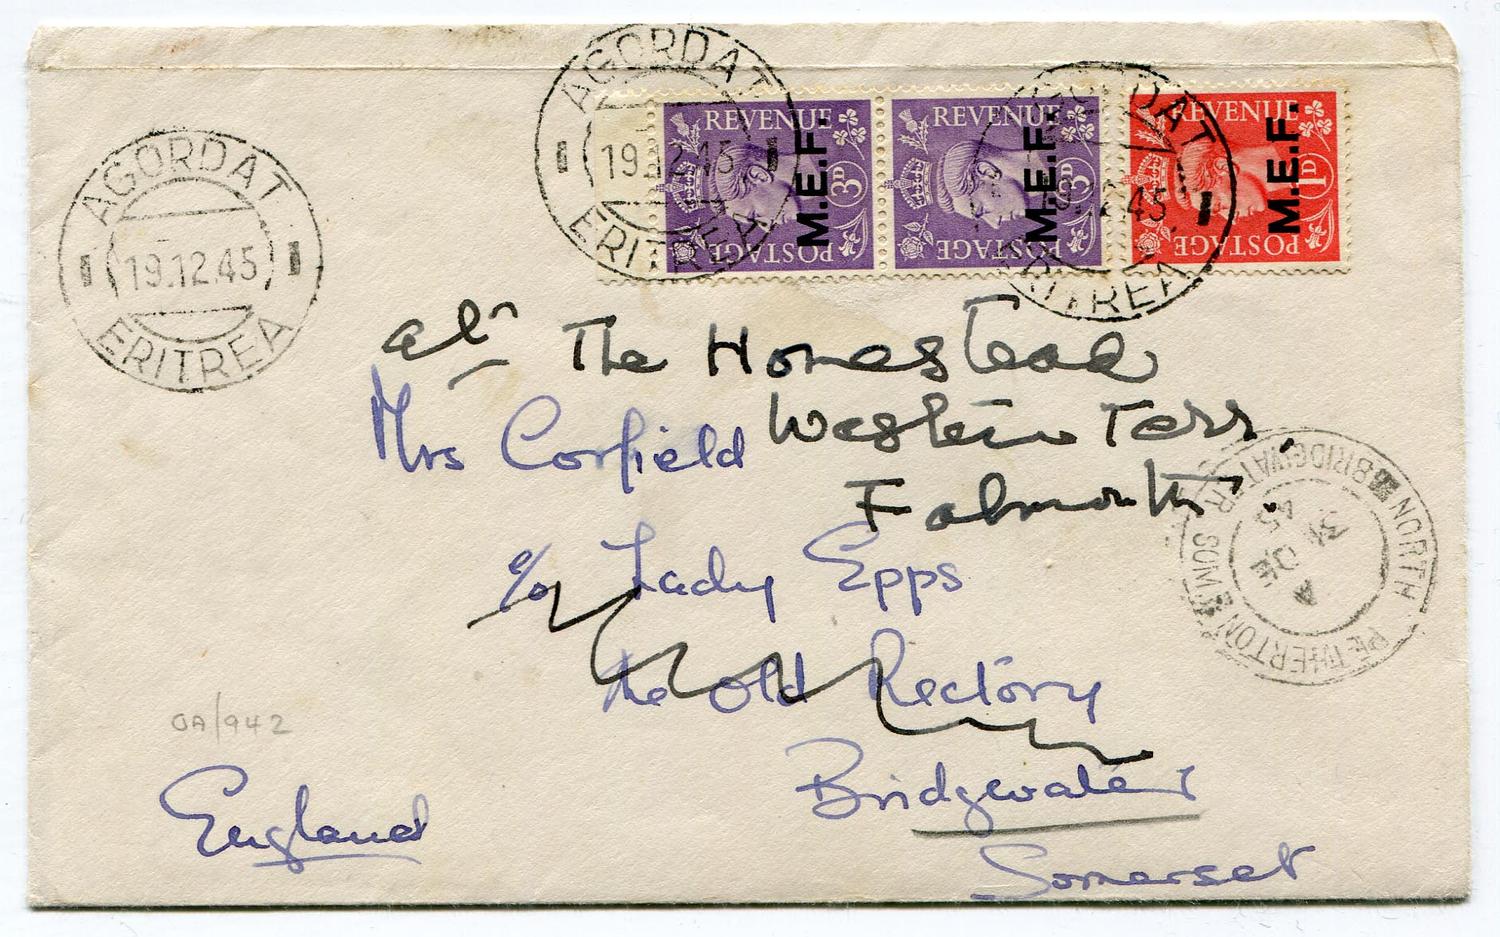 AGORDAT
19.12.45
ERITREA
AGORDAT
19.12.45
ERITREA
REVENUE
M.E.F.
3D
POSTAGE
REVENUE
M.E.F.
3D
POSTAGE
AGORDAT
12.45
ERITREA
REVENUE
M.E.F.
1D
POSTAGE
The Homestead
Western Terr.
Falmouth
Mrs Corfield
c/o Lady Epps
The Old Rectory
Bridgwater
Somerset
England
OA/942
NORTH PETHERTON
BRIDGWATER SOM
A
31 DE
45